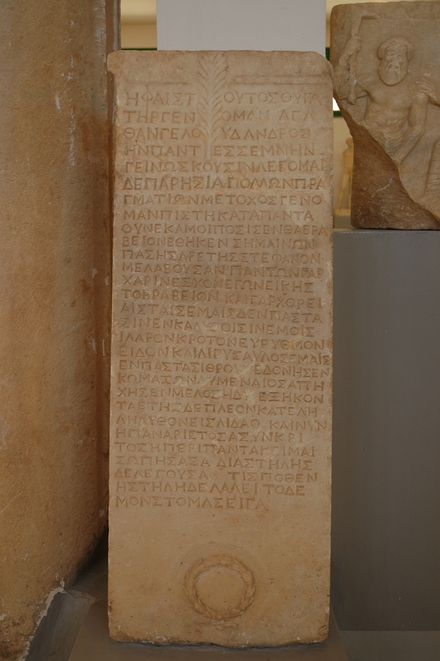 ΗΦΑΙΣΤ ΟΥΤΟΣΟΥ
ΤΗΡΓΕΝ ΟΜΑΝ ΑΓΑ
ΘΑΝΓΕΛΟ ΥΔΑΝΔΡΟΣ
ΗΝΠΑΝΤ ΕΣΣΕΜΝΗΝ
ΓΕΙΝΩΣΚΟΥΣΙΝΛΕΓΟΜΑΙ
ΔΕΠΑΡΗΣΙΑ
ΓΜΑΤΙΩΝΜΕΤΟΧΟΣΓΕΝΟ
ΜΑΝΠΙΣΤΗΚΑΤΑΠΑΝΤΑ
ΟΥΝΕΚΑΜΟΙΠΟΣΙΣΕΝΘΑΒΡΑ
ΒΕΙΟΝΕΘΗΚΕΝΣΗΜΑΙΝΩΝ
ΠΑΣΗΣΑΡΕΤΗΣΣΤΕΦΑΝΟΝ
ΜΕΛΑΒΟΥΣΑΝΠΑΝΤΩΝΓΑΡ
ΧΑΡΙΝΕΣΧΟΝΕΓΩΝΕΙΚΗΣ
ΤΟΒΡΑΒΕΙΟΝ ΚΑΙΓΑΡΧΟΡΕΙ
ΑΙΣΤΑΙΣΕΜΑΙΣΔΕΝΠΑΣΤΑ
ΣΙΝΕΝΚΑΛΟΙΣΙΝΕΜΟΙΣ
ΙΛΑΡΟΝΚΡΟΤΟΝΕΥΡΥΘΜΟΝ
ΕΙΔΟΝΚΑΙΛΙΓΥΣΑΥΛΟΣΕΜΑΙΣ
ΕΝΠΑΣΤΑΣΙ
ΧΗΣΕΝΜΕΛΟΣΗΔΥ ΕΞΗΚΟΝ
ΤΑΕΤΗΣΔΕΠΛΕΟΝΚΑΤΕΛΗ
ΛΗΛΥΘΟΝΕΙΣΑΙΔΑΟ ΚΑΙΝΥΝ
ΗΠΑΝΑΡΙΣΤΟΣΑΣΥΝΚΡΙ
ΤΟΣΗΠΕΡΙΠΑΝΤΑΚΕΙΜΑΙ
ΣΩΠΗΣΑΣΑ ΔΙΑΣΤΗΛΗΣ
ΔΕΛΕΓΟΥΣΑ ΤΙΣΠΟΘΕΝ
ΗΣΤΗΛΗΔΕΛΑΛΕΙΤΟΔΕ
ΜΟΝΣΤΟΜΑΣΕΙΓΑ